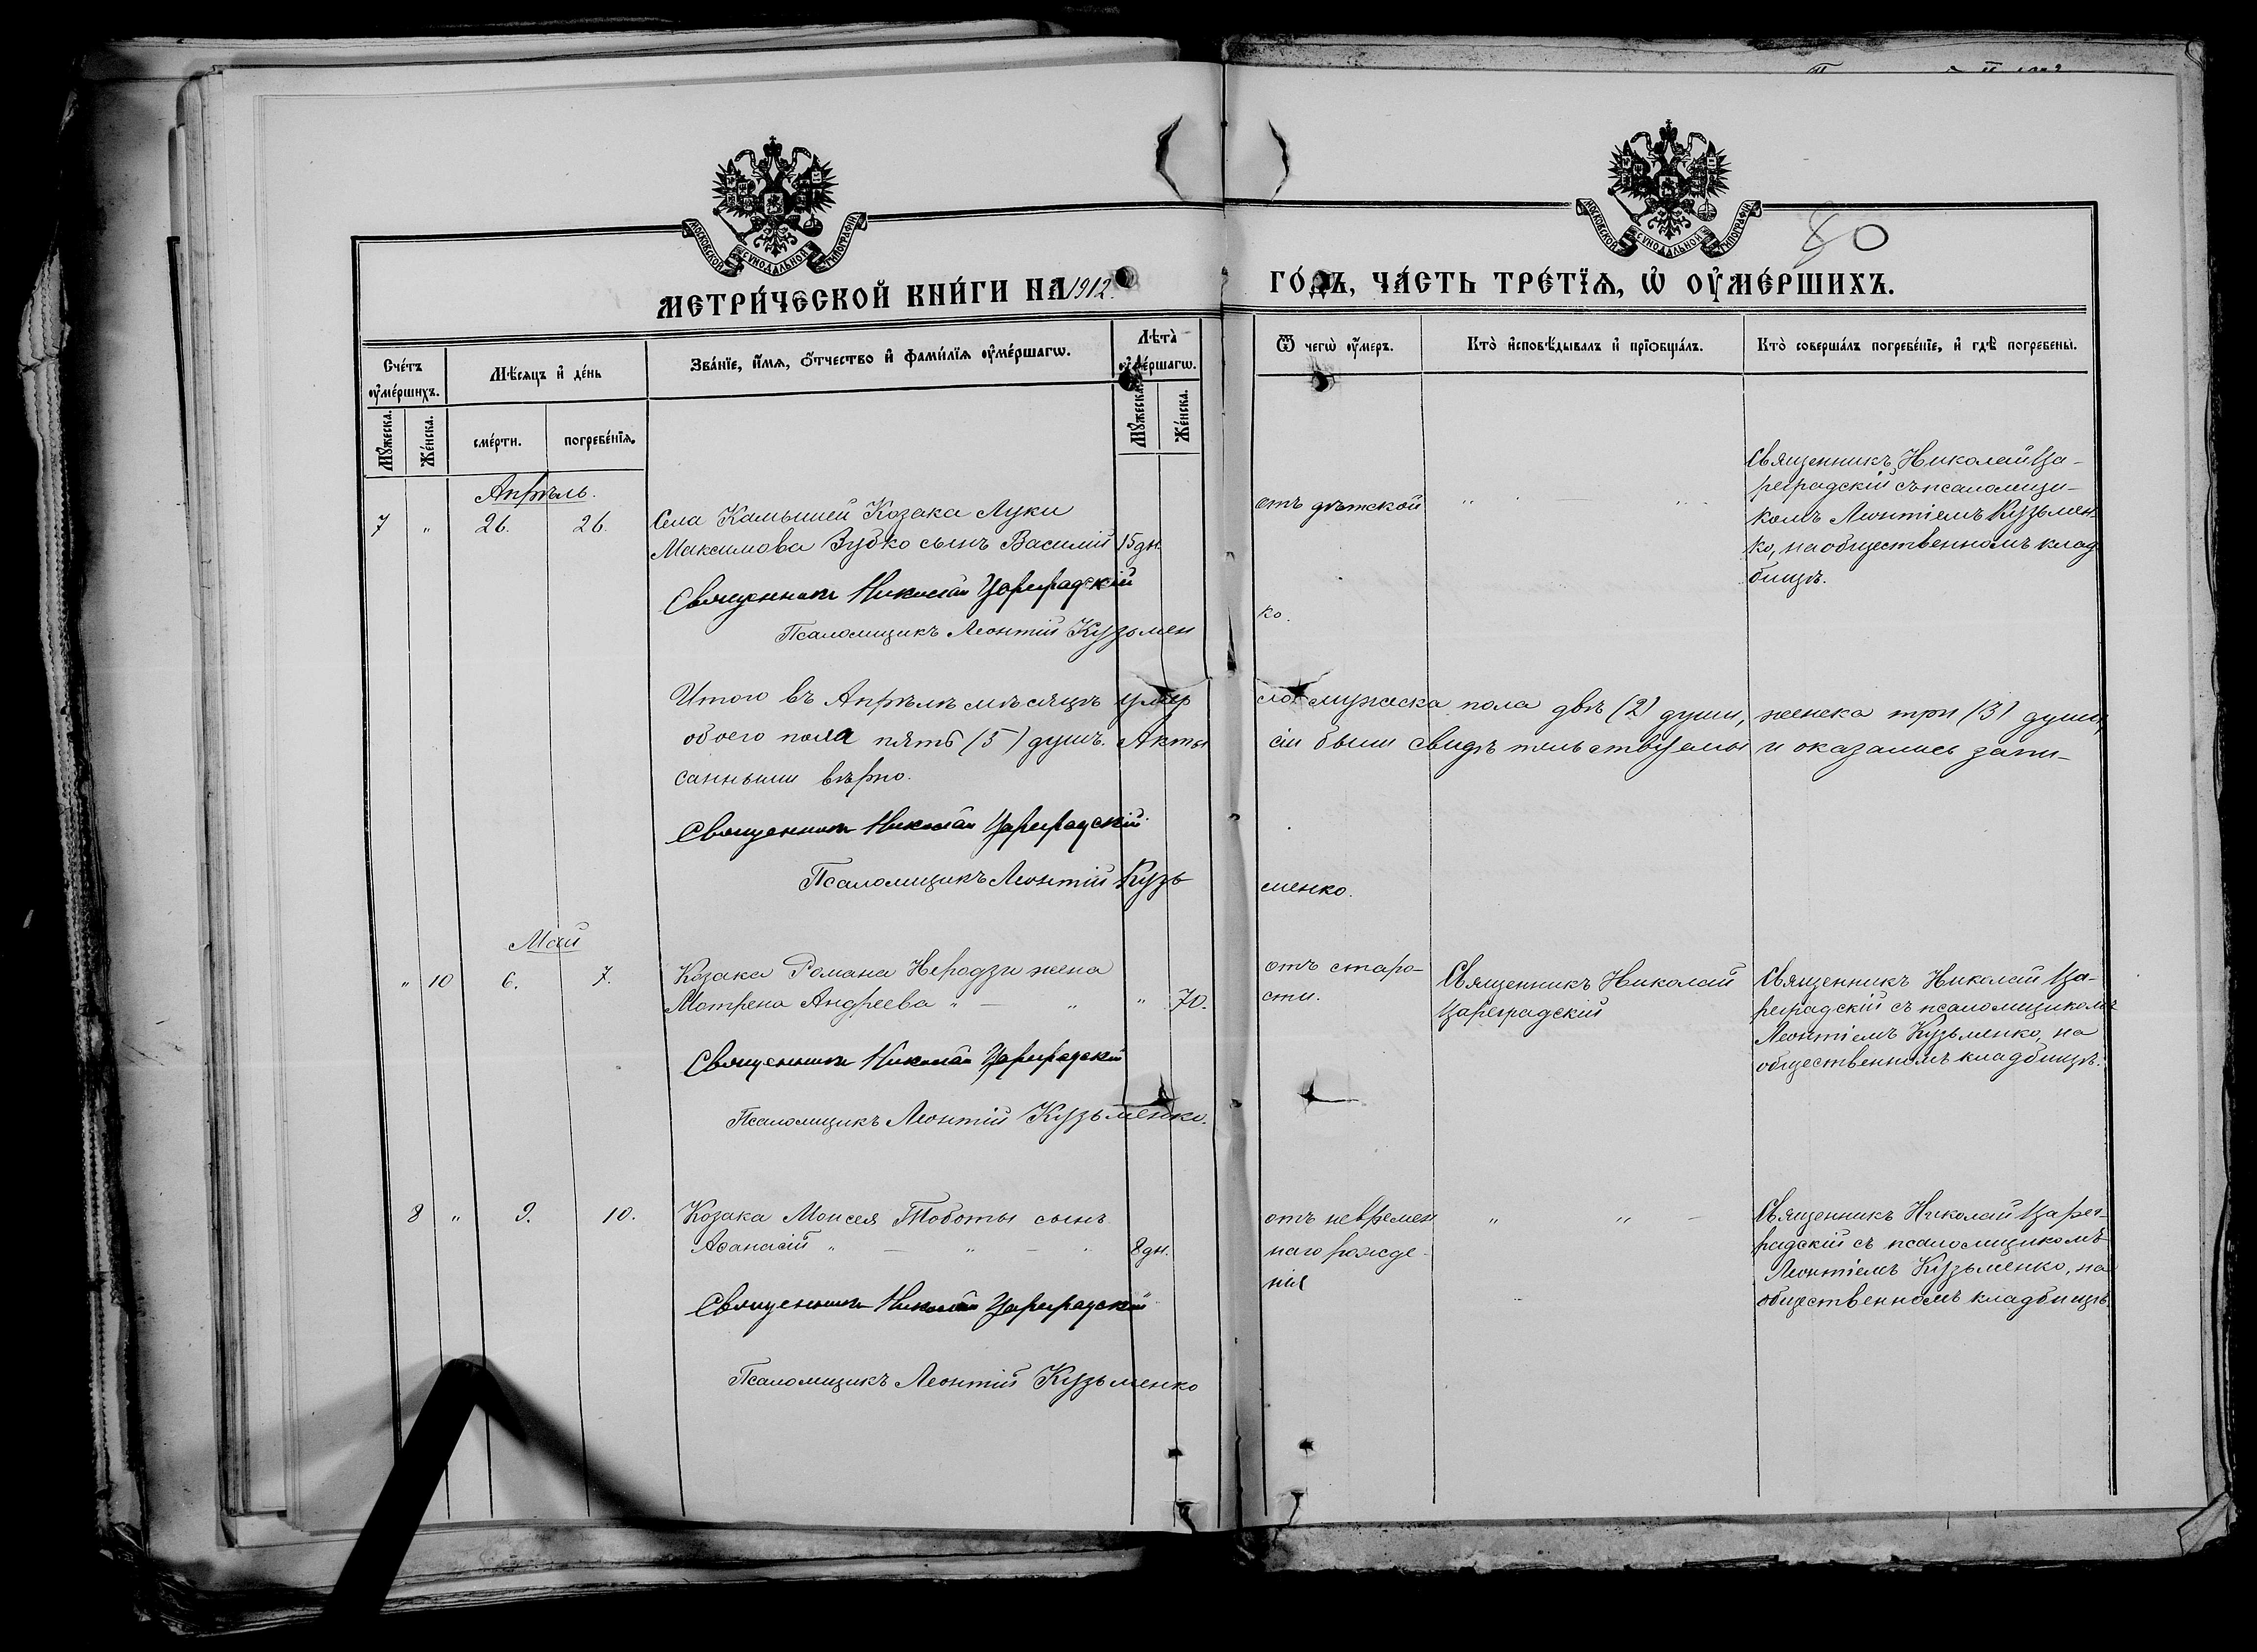 МОСКОВСКОЙ СѴНОДАЛЬНОЙ ТИПОГРАФІИ
МОСКОВСКОЙ СѴНОДАЛЬНОЙ ТИПОГРАФІИ
80
МЕТРИ́ЧЕСКОЙ КНИ́ГИ НА 1912.
ГО́ДЪ, ЧА́СТЬ ТРЕ́ТЇѦ, Ѡ҆ ОУ҆МЕ́РШИХЪ.
Сче́тъ оу҆ме́ршихъ.
Мѣ́сяцъ и҆ де́нь
Зва́нїе, и҆́мя, ѻ҆́тчество и҆ фами́лїя оу҆ме́ршагѡ.
Лѣта̀ оу҆ме́ршагѡ.
Ѿ чегѡ̀ оу҆́меръ.
Кто̀ и҆сповѣ́дывалъ и҆ прїѻбща́лъ.
Кто̀ соверша́лъ погребе́нїе, и҆ гдѣ̀ погребены̀.
Му́жеска.
Же́нска.
сме́рти.
погребе́нїя.
Му́жеска.
Же́нска.
Апрѣль.
7 " 26. 26
Села Камышей Козака Луки
Максимова Зубко сынъ Василій 15 дн.
отъ дѣтской " "
Священникъ Николай Ца-
реградскій съ псаломщи-
комъ Леонтіемъ Кузьмен-
ко, на общественномъ клад
бищѣ.
Священникъ Николай Цареградскій
Псаломщикъ Леонтій Кузьмен
ко.
Итого въ Апрѣлѣ мѣсяцѣ умер
ло мужеска пола двѣ (2) души, женска три (3) души,
обоего пола пять (5) душъ. Акты
сіи были свидѣтельствуемы и оказались запи-
санными вѣрно.
Священникъ Николай Цареградскій
Псаломщикъ Леонтій Кузь
менко.
Май
" 10 6. 7.
Козака Романа Неродзи жена
Мотрена Андреева " — " " 70.
отъ старо-
сти.
Священникъ Николай
Цареградскій
Священникъ Николай Ца-
реградскій съ псаломщикомъ
Леонтіемъ Кузьменко, на
общественномъ кладбищѣ.
Священникъ Николай Цареградскій
Псаломщикъ Леонтій Кузьменко.
8 " 9. 10.
Козака Моисея Тоботы сынъ
Аѳанасій " — " — " 8 дн.
отъ невремен
наго рожде-
нія
" " —
Священникъ Николай Царег-
радскій съ псаломщикомъ
Леонтіемъ Кузьменко, на
общественномъ кладбищѣ.
Священникъ Николай Цареградскій
Псаломщикъ Леонтій Кузьменко